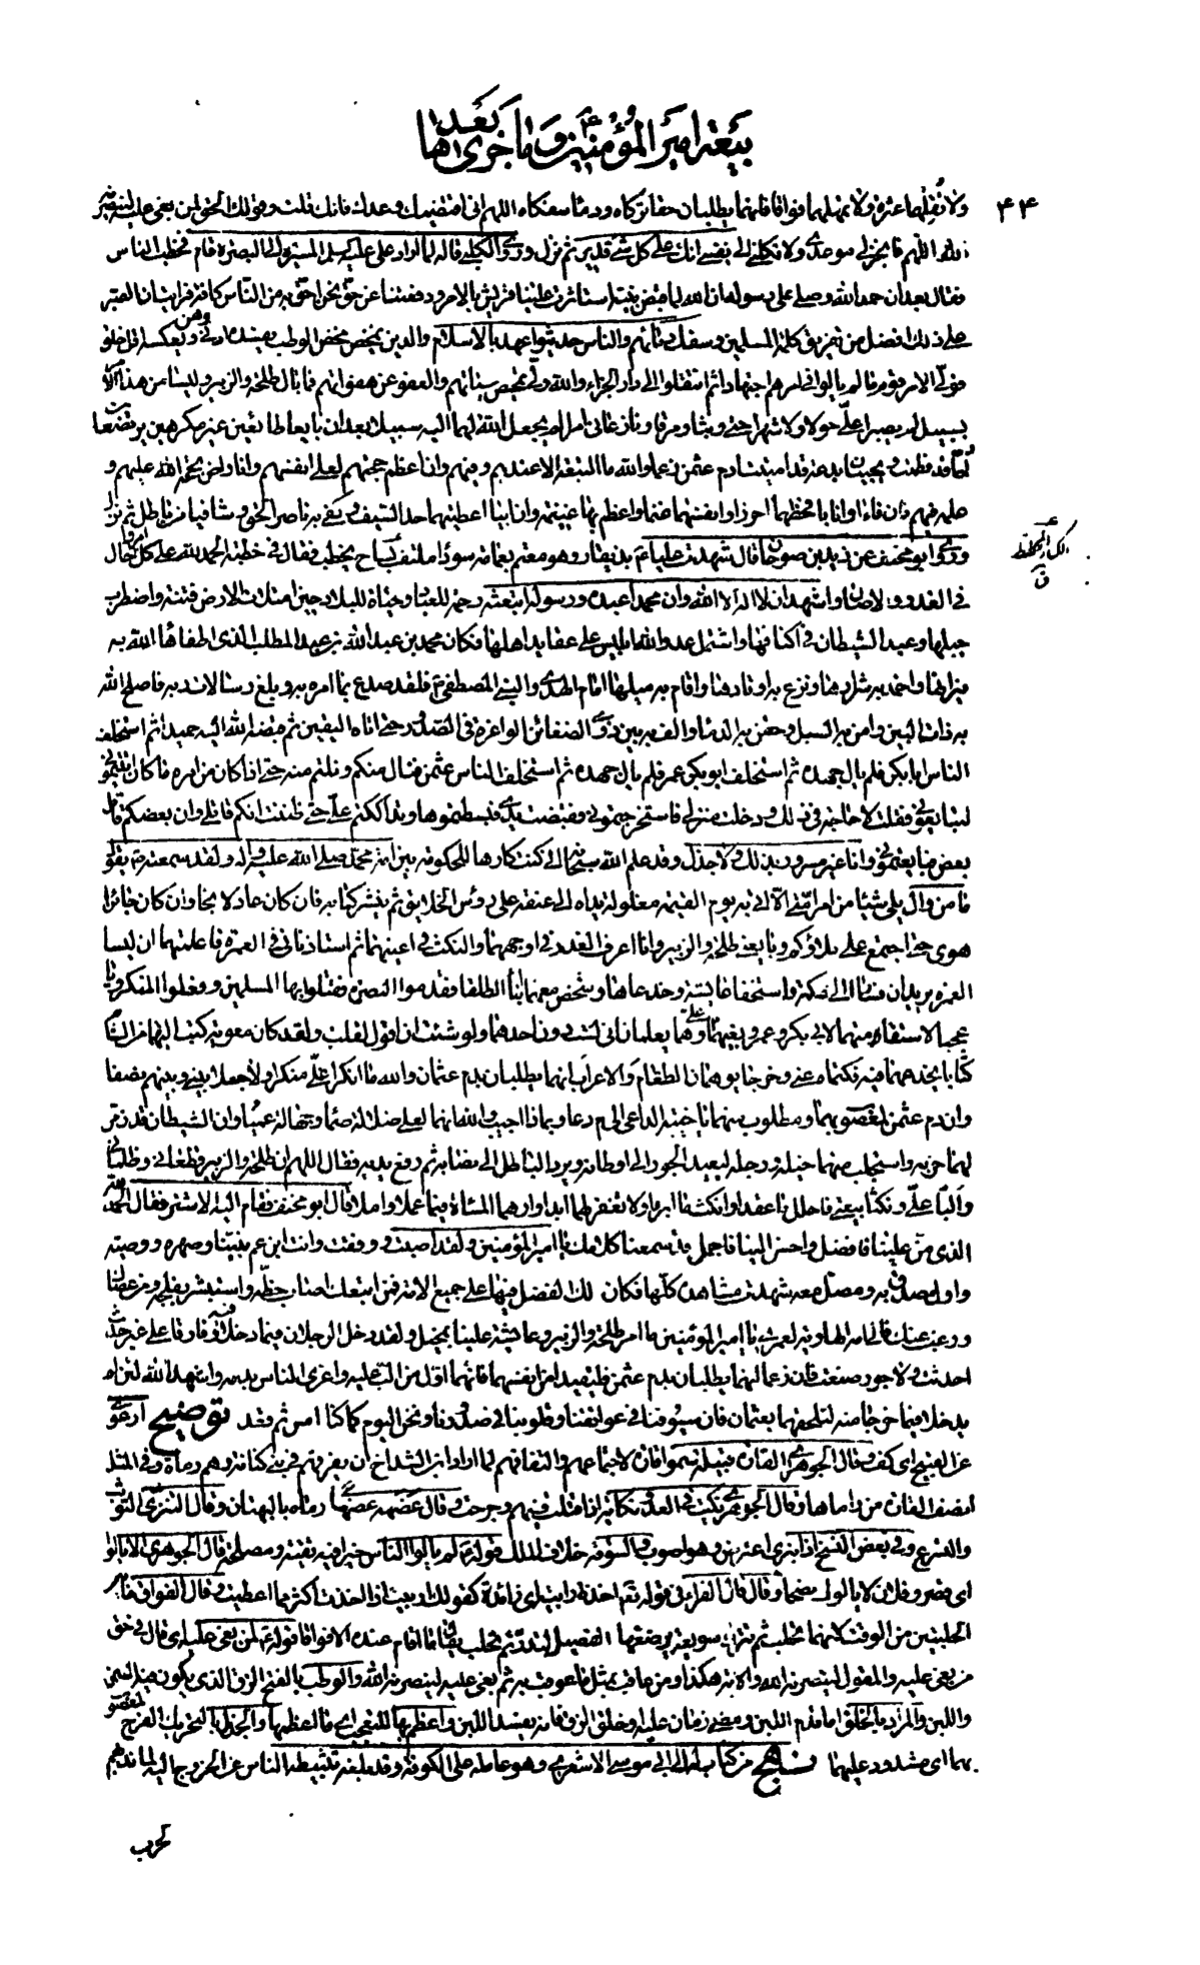 بيعة امير المؤمنين ع وما جرى بعدها
۴۴
ولا تقلهما عثرة ولا تمهلهما فواقا فانهما يطلبان حقا تركاه ودما سفكاه اللهم انى اقتضيتك وعدك فانك قلت وقولك الحق لمن بغى عليه لينصرنه
الله اللهم فانجز لى موعدى ولا تكلنى الى نفسى انك على كل شئ قدير ثم نزل وروى الكلبى قال لما اراد على عليه السلم المسير الى البصرة قام فخطب الناس
فقال بعد ان حمد الله وصلى على رسوله ان الله لما قبض نبيه استأثرت علينا قريش بالامر ودفعتنا عن حق نحن احق به من الناس كافة فرايت ان الصبر
على ذلك افضل من تفريق كلمة المسلمين وسفك دمائهم والناس حديثوا عهد بالاسلام والدين يمخض مخض الوطب يفسده ادنى وهن ويعكسه اقل خلق
فولى الامر قوم لم يالوا فى امرهم اجتهادا ثم انتقلوا الى دار الجزاء والله ولى تمحيص سيئاتهم والعفو عن هفواتهم فما بال طلحة والزبير وليسا من هذا الامر
بسبيل لم يصبرا على حولا ولا شهرا حتى وثبا ومرقا ونازعانى امرا لم يجعل الله لهما اليه سبيلا بعد ان بايعا طائعين غير مكرهين يرتضعان
اما قد فطمت ويحييان بدعة قد اميتت ادم عثمن زعما والله ما التبعة الا عندهم وفيهم وان اعظم حجتهم لعلى انفسهم وانا راض بحجة الله عليهم و
علمه فيهم فان فاءا وانابا فحظهما احرزا وانفسهما غنما واعظم بها غنيمة وان ابيا اعطيتهما حد السيف وكفى به ناصرا لحق وشافيا من باطل ثم نزل
وروى ابو مخنف عن زيد بن صوحان قال شهدت عليا ع بذيقار وهو معتم بعمامة سوداء ملتف بساج يخطب فقال فى خطبة الحمد لله على كل امر وحال
فى الغدو والاصال واشهد ان لا اله الا الله وان محمدا عبده ورسوله ابتعثه رحمة للعباد وحياة للبلاد حين امتلات الارض فتنة واضطرب
حبلها وعبد الشيطان فى اكنافها واشتمل عدو الله ابليس على عقايد اهلها فكان محمد بن عبد الله بن عبد المطلب الذى اطفا الله به
نيرانها واخمد به شرارها ونزع به اوتادها واقام به ميلها امام الهدى والنبى المصطفى ص فلقد صدع بما امره به وبلغ رسالات ربه فاصلح الله
به ذات البين وامن به السبل وحقن به الدماء والف به بين ذوى الضغائن الواغرة فى الصدور حتى اتاه اليقين ثم قبضه الله اليه حميدا ثم استخلف
الناس ابا بكر فلم يال جهده ثم استخلف ابو بكر عمر فلم يال جهده ثم استخلف الناس عثمن فنال منكم ونلتم منه حتى اذا كان من امره ما كان اتيتمونى
لتبايعونى فقلت لا حاجة فى ذلك ودخلت منزلى فاستخرجتمونى فقبضت يدى فبسطتموها وتداككتم على حتى ظننت انكم قاتلى وان بعضكم قاتل
بعض فبايعتمونى وانا غير مسرور بذلك ولا جذل وقد علم الله سبحانه انى كنت كارها للحكومة بين امة محمد صلى الله عليه واله ولقد سمعته ص يقول
ما من وال يلى شيئا من امر امتى الا اتى به يوم القيمة مغلولة يداه الى عنقه على رؤس الخلايق ثم ينشر كتابه فان كان عادلا نجا وان كان جائرا
هوى حتى اجتمع على ملاؤكم وبايعنى طلحة والزبير وانا اعرف الغدر فى اوجههما والنكث فى اعينهما ثم استاذنانى فى العمرة فاعلمتهما ان ليسا
العمرة يريدان فسارا الى مكة واستخفا عايشة وخدعاها وشخص معهما ابناء الطلقا فقدموا البصرة فقتلوا بها المسلمين وفعلوا المنكر ويا
عجبا لاستقامتهما لابى بكر وعمر وبغيهما على وهما يعلمان انى لست دون احدهما ولو شئت ان اقول لقلت ولقد كان معوية كتب اليهما من الشام
كتابا يخدعهما فيه فكتماه عنى وخرجا يوهمان الطغام والاعراب انهما يطلبان بدم عثمان والله ما انكرا على منكرا ولا جعلا بينى وبينهم نصفا
وان دم عثمن لمعصوب بهما ومطلوب منهما يا خيبة الداعى الى م دعا وبماذا اجيب والله انهما لعلى ضلالة صماء وجهالة عمياء وان الشيطان قد ذمر
لهما حزبه واستجلب منهما خيله ورجله ليعيد الجور الى اوطانه ويرد الباطل الى نصابه ثم رفع يديه فقال اللهم ان طلحة والزبير قطعانى وظلمانى
والبا على ونكثا بيعتى فاحلل ما عقدا وانكث ما ابرما ولا تغفر لهما ابدا وارهما المساءة فيما عملا واملا قال ابو مخنف فقام اليه الاشتر فقال الحمد لله
الذى من علينا فافضل واحسن الينا فاجمل قد سمعنا كلامك يا امير المؤمنين ولقد اصبت ووفقت وانت ابن عم نبينا وصهره ووصيه
واول مصدق به ومصل معه شهدت مشاهده كلها فكان لك الفضل فيها على جميع الامة فمن اتبعك اصاب حظه واستبشر بفلجه ومن عصاك
ورغب عنك فالى امه الهاوية لعمرى يا امير المؤمنين ما امر طلحة والزبير وعايشة علينا بمخيل ولقد دخل الرجلان فيما دخلا فيه وفارقا على غير حدث
احدثت ولا جور صنعت فان زعما انهما يطلبان بدم عثمن فليقيدا من انفسهما فانهما اول من الب عليه واغرى الناس بدمه واشهد الله لئن لم
يدخلا فيما خرجا منه لنلحقنهما بعثمان فان سيوفنا فى عواتقنا وقلوبنا فى صدورنا ونحن اليوم كما كنا امس ثم قعد توضيح ارعوى
عن القبيح اى كف وقال الجوهرى القارة قبيلة سموا قارة لاجتماعهم والتفافهم لما اراد ابن الشداخ ان يفرقهم فى بنى كنانة وهم رماة وفى المثل
انصف القارة من راماها وقال الجوهرى نكيت فى العدو نكاية اذا قتلت فيهم وجرحت وقال عضهه عضها رماه بالبهتان وقال التنزى التوثب
والتسرع وفى بعض النسخ اذ انبرى اعترض وهو اصوب والسوقة خلاف الملك قوله ع لم يالوا الناس خيرا فيه تقية ومصلحة قال الجوهرى الا يالو
اى قصر وفلان لا يالوك نصحا
الحلبتين من الوقت لانها تحلب ثم تترك سويعة يرضعها الفصيل لتدر ثم تحلب يقال ما اقام عنده الا فواقا قوله ع لمن بغى عليه اى قال فى حق
من بغى عليه والمقول لينصرنه الله والاية هكذا ومن عاقب بمثل ما عوقب به ثم بغى عليه لينصرنه الله والوطب بالفتح الزق الذى يكون فيه السمن
واللبن والمراد بالخلق اما قدم اللبن ومضى زمان عليه او خلق الزق فانه يفسد اللبن واعظم بها للتعجب اى ما اعظمها والجذل بالتحريك الفرح لمعصوب
بهما اى مشدود عليهما نهج من كتاب له الى ابى موسى الاشعرى وهو عامله على الكوفة وقد بلغه تثبيطه الناس عن الخروج اليه لما ندبهم
لحرب